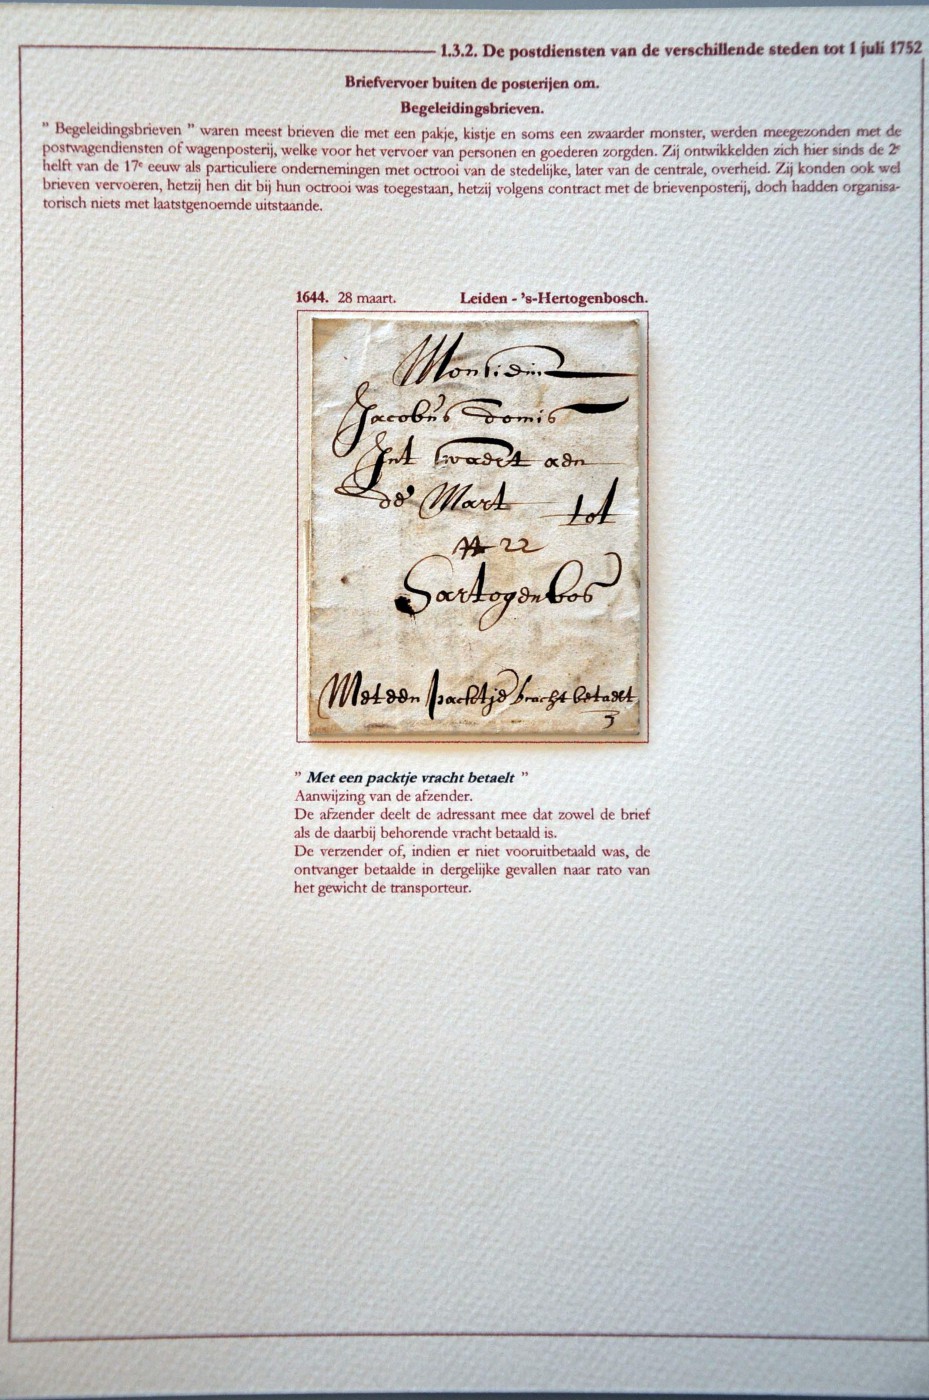 1.3.2. De postdiensten van de verschillende steden tot 1 juli 1752
Briefvervoer buiten de posterijen om.
Begeleidingsbrieven.
" Begeleidingsbrieven " waren meest brieven die met een pakje, kistje en soms een zwaarder monster, werden meegezonden met de
postwagendiensten of wagenposterij, welke voor het vervoer van personen en goederen zorgden. Zij ontwikkelden zich hier sinds de 2e
helft van de 17e eeuw als particuliere ondernemingen met octrooi van de stedelijke, later van de centrale, overheid. Zij konden ook wel
brieven vervoeren, hetzij hen dit bij hun octrooi was toegestaan, hetzij volgens contract met de brievenposterij, doch hadden organisa-
torisch niets met laatstgenoemde uitstaande.
1644. 28 maart. Leiden - 's-Hertogenbosch.
Jacobus domis
Int aen
de Mart tot
22
Sartogenbos
Met een packtje vracht betaelt
3
" Met een packtje vracht betaelt "
Aanwijzing van de afzender.
De afzender deelt de adressant mee dat zowel de brief
als de daarbij behorende vracht betaald is.
De verzender of, indien er niet vooruitbetaald was, de
ontvanger betaalde in dergelijke gevallen naar rato van
het gewicht de transporteur.